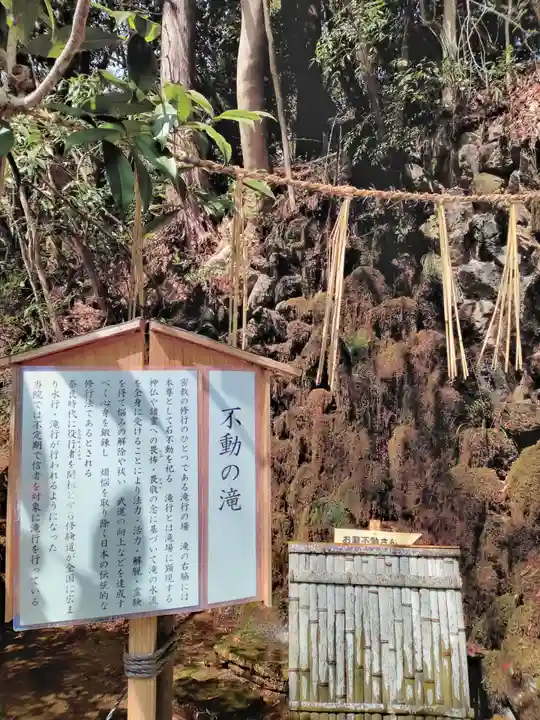 不動の滝
密教の修行のひとつである滝行の場 滝の右脇には
本尊として石不動を祀る 滝行とは滝場に顕現する
神仏や諸霊への畏怖・畏敬の念に基づいて滝の水流
を全身に受けることにより法力・活力・解脱・霊験
を得て悩みの解除や祓い 武道の向上などを達成す
べく心身を鍛錬し 煩悩を取り除く日本の伝統的な
修行法であるとされる
奈良時代に役行者を開祖とする修験道が全国に広ま
り水行・滝行が行われるようになった
当院では不定期で信者を対象に滝行を行っている
お瀧不動さん